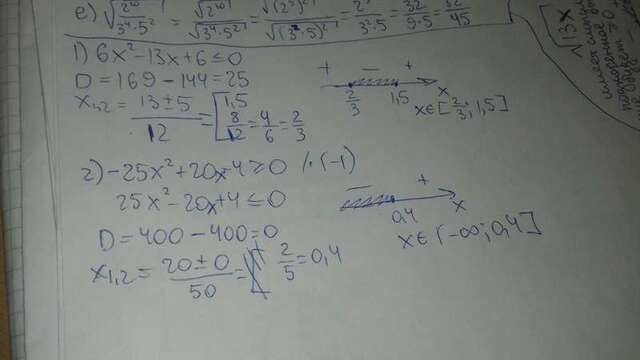 е) √(2¹⁰/(3⁴·5²)) = √(2¹⁰)/√(3⁴·5²) = √((2⁵)²)/√((3²·5)²) = 2⁵/(3²·5) = 32/(9·5) = 32/45
1) 6x² - 13x + 6 ≤ 0
D = 169 - 144 = 25
x₁,₂ = (13 ± 5)/12 = [1,5
8/12 = 4/6 = 2/3
+ - +
2/3 1,5 x
x ∈ [2/3; 1,5]
2) -25x² + 20x - 4 ≥ 0 /·(-1)
25x² - 20x + 4 ≤ 0
D = 400 - 400 = 0
x₁,₂ = (20 ± 0)/50 = 2/5 = 0,4
- +
0,4 x
x ∈ (-∞; 0,4]
√13x